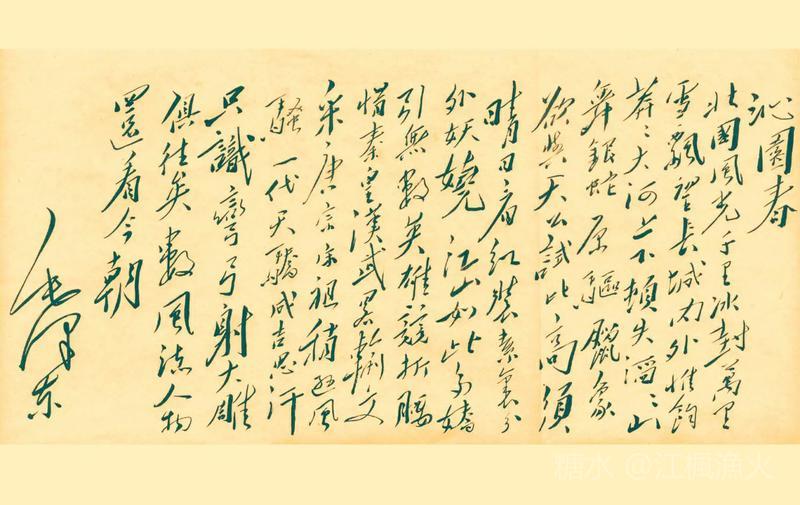 沁園春
北國風光千里冰封萬里
雪飄望長城内外惟餘
莽〻大河上下頓失滔〻山
舞銀蛇原驅臘象
欲與天公試比高須
晴日看紅裝素裹分
外妖嬈江山如此多嬌
引無數英雄競折腰
惜秦皇漢武畧輸文
采唐宗宋祖稍遜風
騷一代天驕成吉思汗
只識彎弓射大雕
俱往矣數風流人物
還看今朝
毛澤東
糖水 @江楓漁火